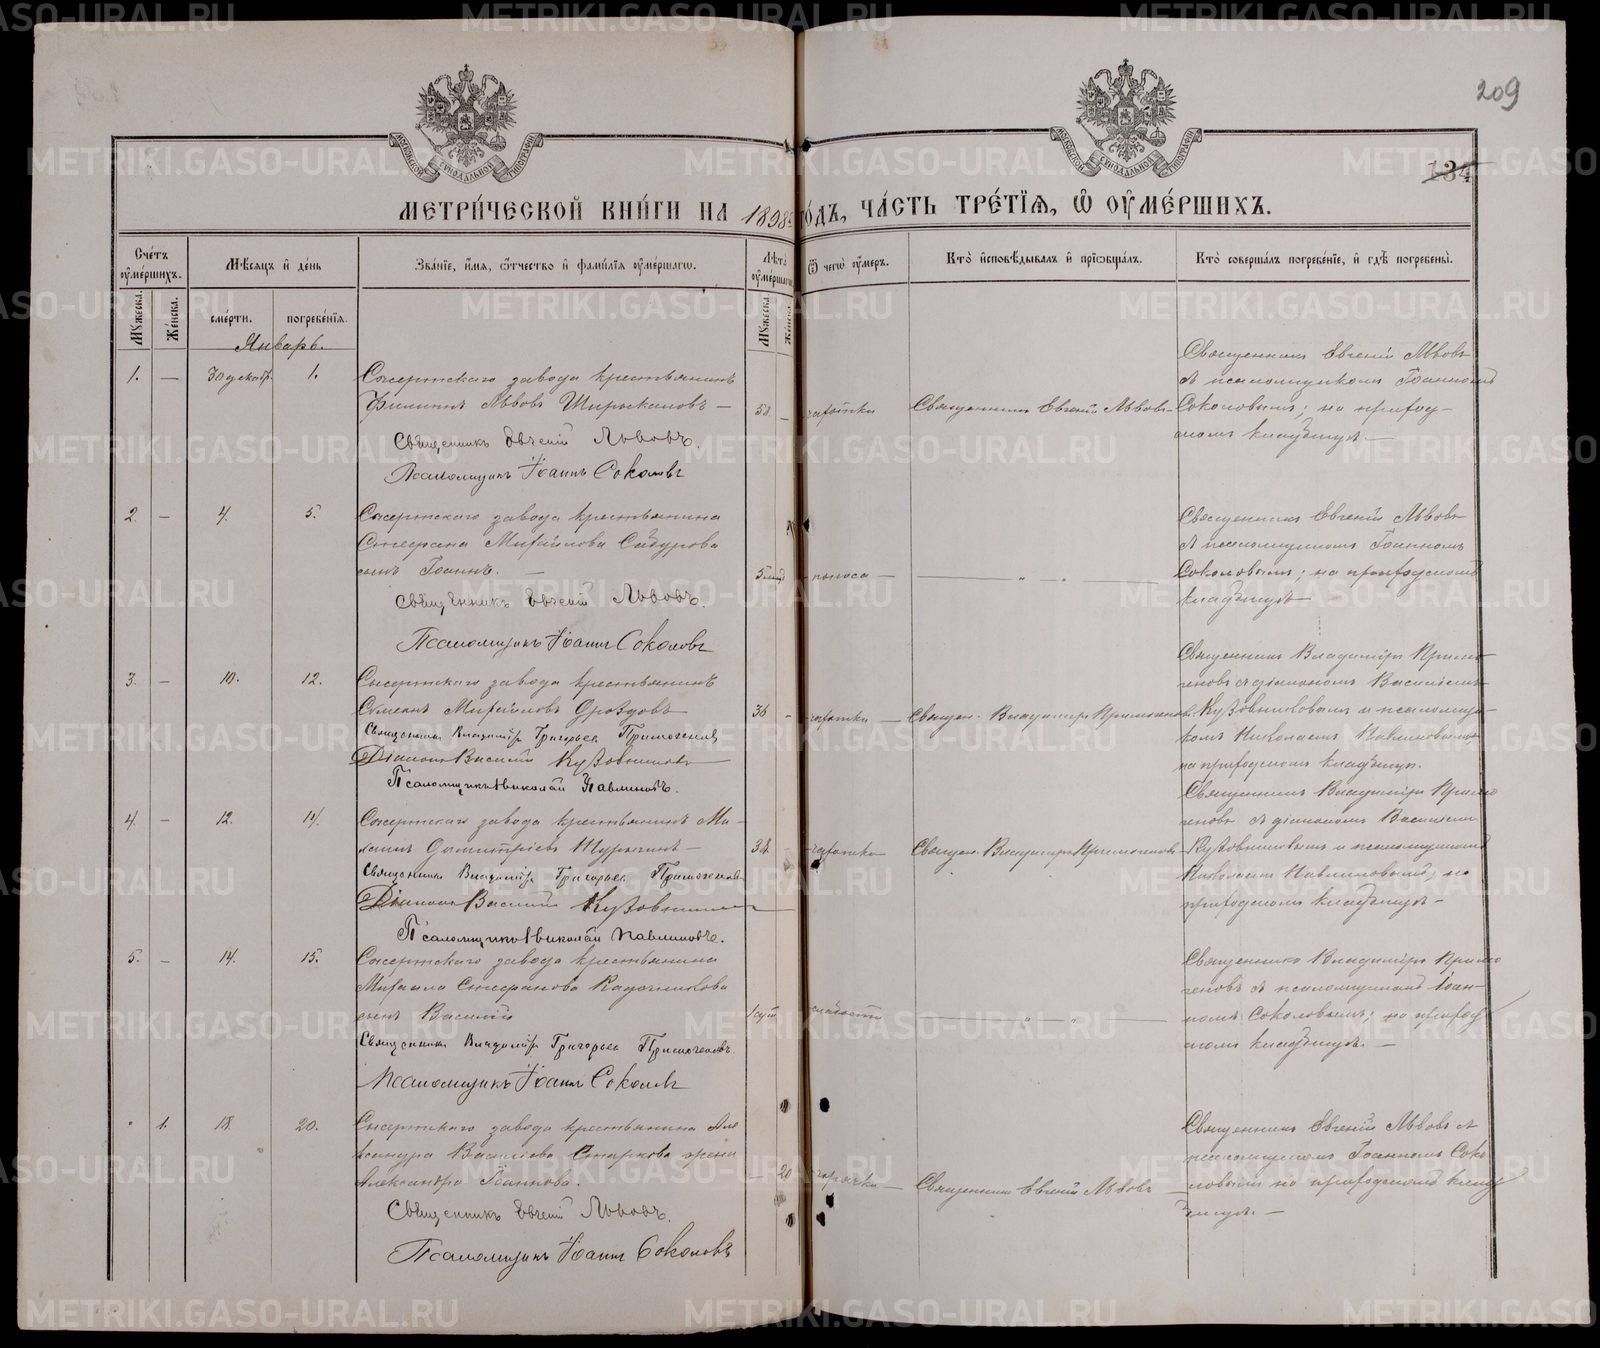 209
134
МОСКОВСКОЙ СѴНОДАЛЬНОЙ ТИПОГРАФІИ
МОСКОВСКОЙ СѴНОДАЛЬНОЙ ТИПОГРАФІИ
МЕТРИ́ЧЕСКОЙ КНИ́ГИ НА 1898 ГО́ДЪ, ЧА́СТЬ ТРЕ́ТЇѦ, Ѡ҆ ОУ҆МЕ́РШИХЪ.
Сче́тъ оу҆ме́ршихъ.
Мѣ́сяцъ и҆ де́нь
Зва́нїе, и҆́мя, ѻ҆́тчество и҆ фами́лїя оу҆ме́ршагѡ.
Лѣ́та оу҆ме́ршагѡ
Ѿ чегѡ̀ оу҆́меръ.
Кто̀ и҆сповѣ́дывалъ и҆ прїѻбща́лъ.
Кто̀ соверша́лъ погребе́нїе, и҆ гдѣ̀ погребены̀.
Мꙋ́жеска. Же́нска.
сме́рти. погребе́нїя.
Мꙋ́жеска. Же́нска.
Январь.
1. — 30 декабр. 1.
Сысертскаго завода крестьянинъ
Филиппъ Львовъ Ширыкаловъ —
Священникъ Евгений Львовъ.
Псаломщикъ Іоаннъ Соколовъ
58 — чахотки
Священникъ Евгений Львовъ
Священникъ Евгений Львовъ
съ псаломщикомъ Іоанномъ
Соколовымъ; на приход-
скомъ кладбищѣ. —
2. — 4. 5.
Сысертскаго завода крестьянина
Стефана Михайлова Сабурова
сынъ Іоаннъ. —
Священникъ Евгений Львовъ.
Псаломщикъ Іоаннъ Соколовъ
поноса —
— „ — „ —
Священникъ Евгений Львовъ
съ псаломщикомъ Іоанномъ
Соколовымъ; на приходскомъ
кладбищѣ —
3. — 10. 12.
Сысертскаго завода крестьянинъ
Симеонъ Михайловъ Дроздовъ
Священникъ Владиміръ Григорьевъ Примогеновъ
Діаконъ Василий Кузовниковъ
Псаломщикъ Николай Павлиновъ.
36 — чахотки —
Священ. Владиміръ Примогеновъ
Священникъ Владиміръ Примо-
геновъ съ діакономъ Василіемъ
Кузовниковымъ и псаломщи-
комъ Николаемъ Павлиновымъ;
на приходскомъ кладбищѣ.
4. — 12. 14.
Сысертскаго завода крестьянинъ
Димитріевъ
Священникъ Владиміръ Григорьевъ Примогеновъ
Діаконъ Василий Кузовниковъ
Псаломщикъ Николай Павлиновъ.
38. — чахотки
Священ. Владиміръ Примогеновъ
Священникъ Владиміръ Примо-
геновъ съ діакономъ Василіемъ
Кузовниковымъ и псаломщикомъ
Николаемъ Павлиновымъ; на
приходскомъ кладбищѣ —
5. — 14. 15.
Сысертскаго завода крестьянина
Михаила Стефанова Кадочникова
сынъ Василий
Священникъ Владиміръ Григорьевъ Примогеновъ.
Псаломщикъ Іоаннъ Соколовъ
слабости
— „ — „ —
Священникъ Владиміръ Примо-
геновъ съ псаломщикомъ Іоан-
номъ Соколовымъ; на приход-
скомъ кладбищѣ. —
1. 18. 20.
Сысертскаго завода крестьянина Але-
ксандра Василіева Старкова жена
Александра Іоаннова.
Священникъ Евгений Львовъ.
Псаломщикъ Іоаннъ Соколовъ
— 20 горячки —
Священникъ Евгений Львовъ —
Священникъ Евгений Львовъ съ
псаломщикомъ Іоанномъ Соко-
ловымъ на приходскомъ клад-
бищѣ. —
METRIKI.GASO-URAL.RU